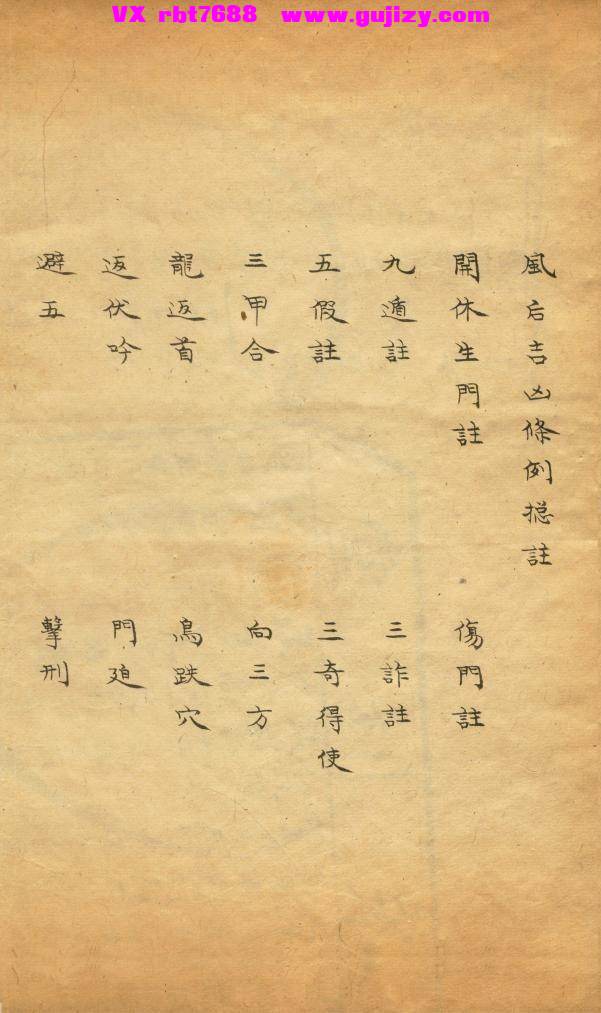 VX rbt7688 www.gujizy.com
風后吉凶條例捴註
開休生門註 傷門註
九遁註 三詐註
五假註 三奇得使
三甲合 向三方
龍返首 鳥跌穴
返伏吟 門廹
避五 擊刑